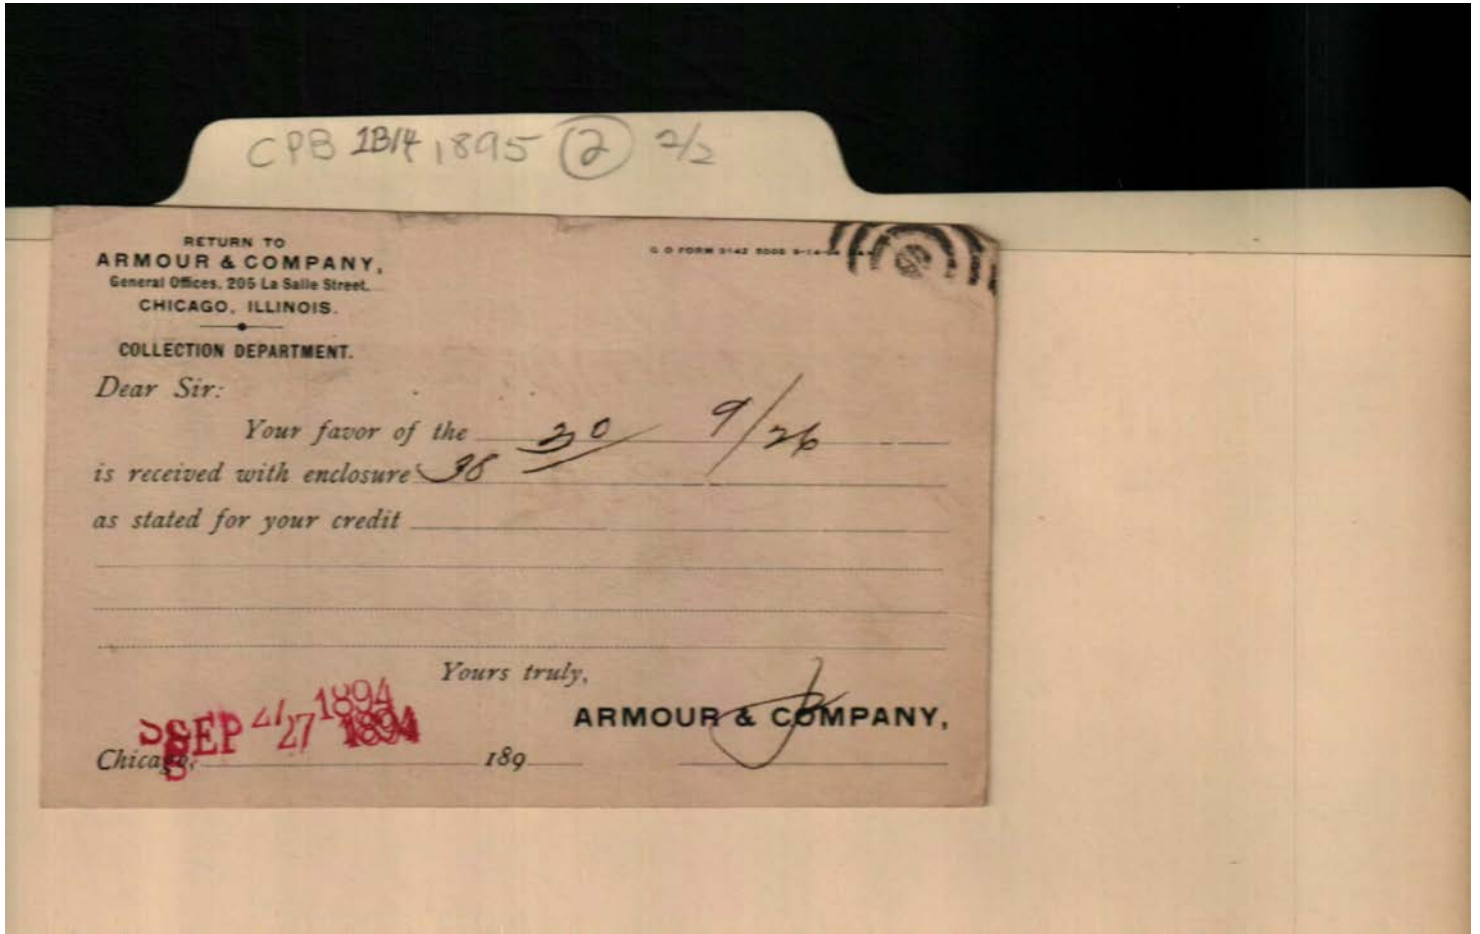 CPB 1B/4 1895 2 2/2
RETURN TO
ARMOUR & COMPANY,
General Offices, 205 La Salle Street,
CHICAGO, ILLINOIS.
COLLECTION DEPARTMENT.
G O FORM 5000
Dear Sir:
Your favor of the 9/26
is received with enclosure 38
as stated for your credit
Yours truly,
ARMOUR & COMPANY,
SEP 27 1894
Chicago, 189